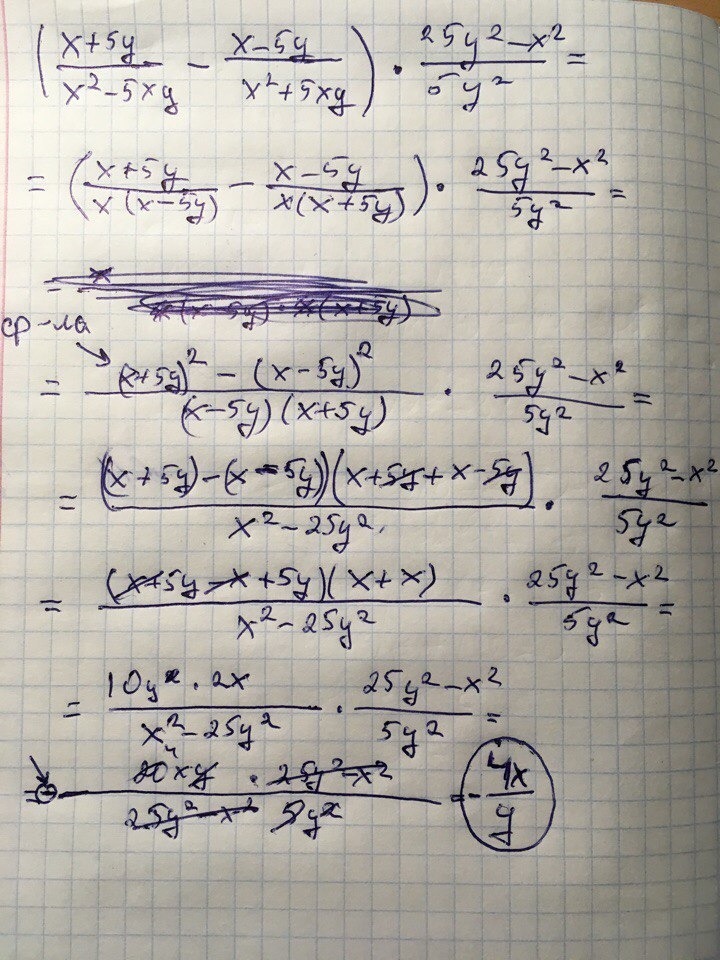 (x+5y / x²-5xy - x-5y / x²+5xy) · 25y²-x² / 5y² =
= (x+5y / x(x-5y) - x-5y / x(x+5y)) · 25y²-x² / 5y² =
ср-ла
= (x+5y)² - (x-5y)² / (x-5y)(x+5y) · 25y²-x² / 5y² =
= ((x+5y)-(x-5y))(x+5y+x-5y) / x²-25y² · 25y²-x² / 5y²
= (x+5y-x+5y)(x+x) / x²-25y² · 25y²-x² / 5y² =
= 10y · 2x / x²-25y² · 25y²-x² / 5y² =
4
= - 20xy · 25y²-x² / 25y²-x² 5y² = - 4x / y